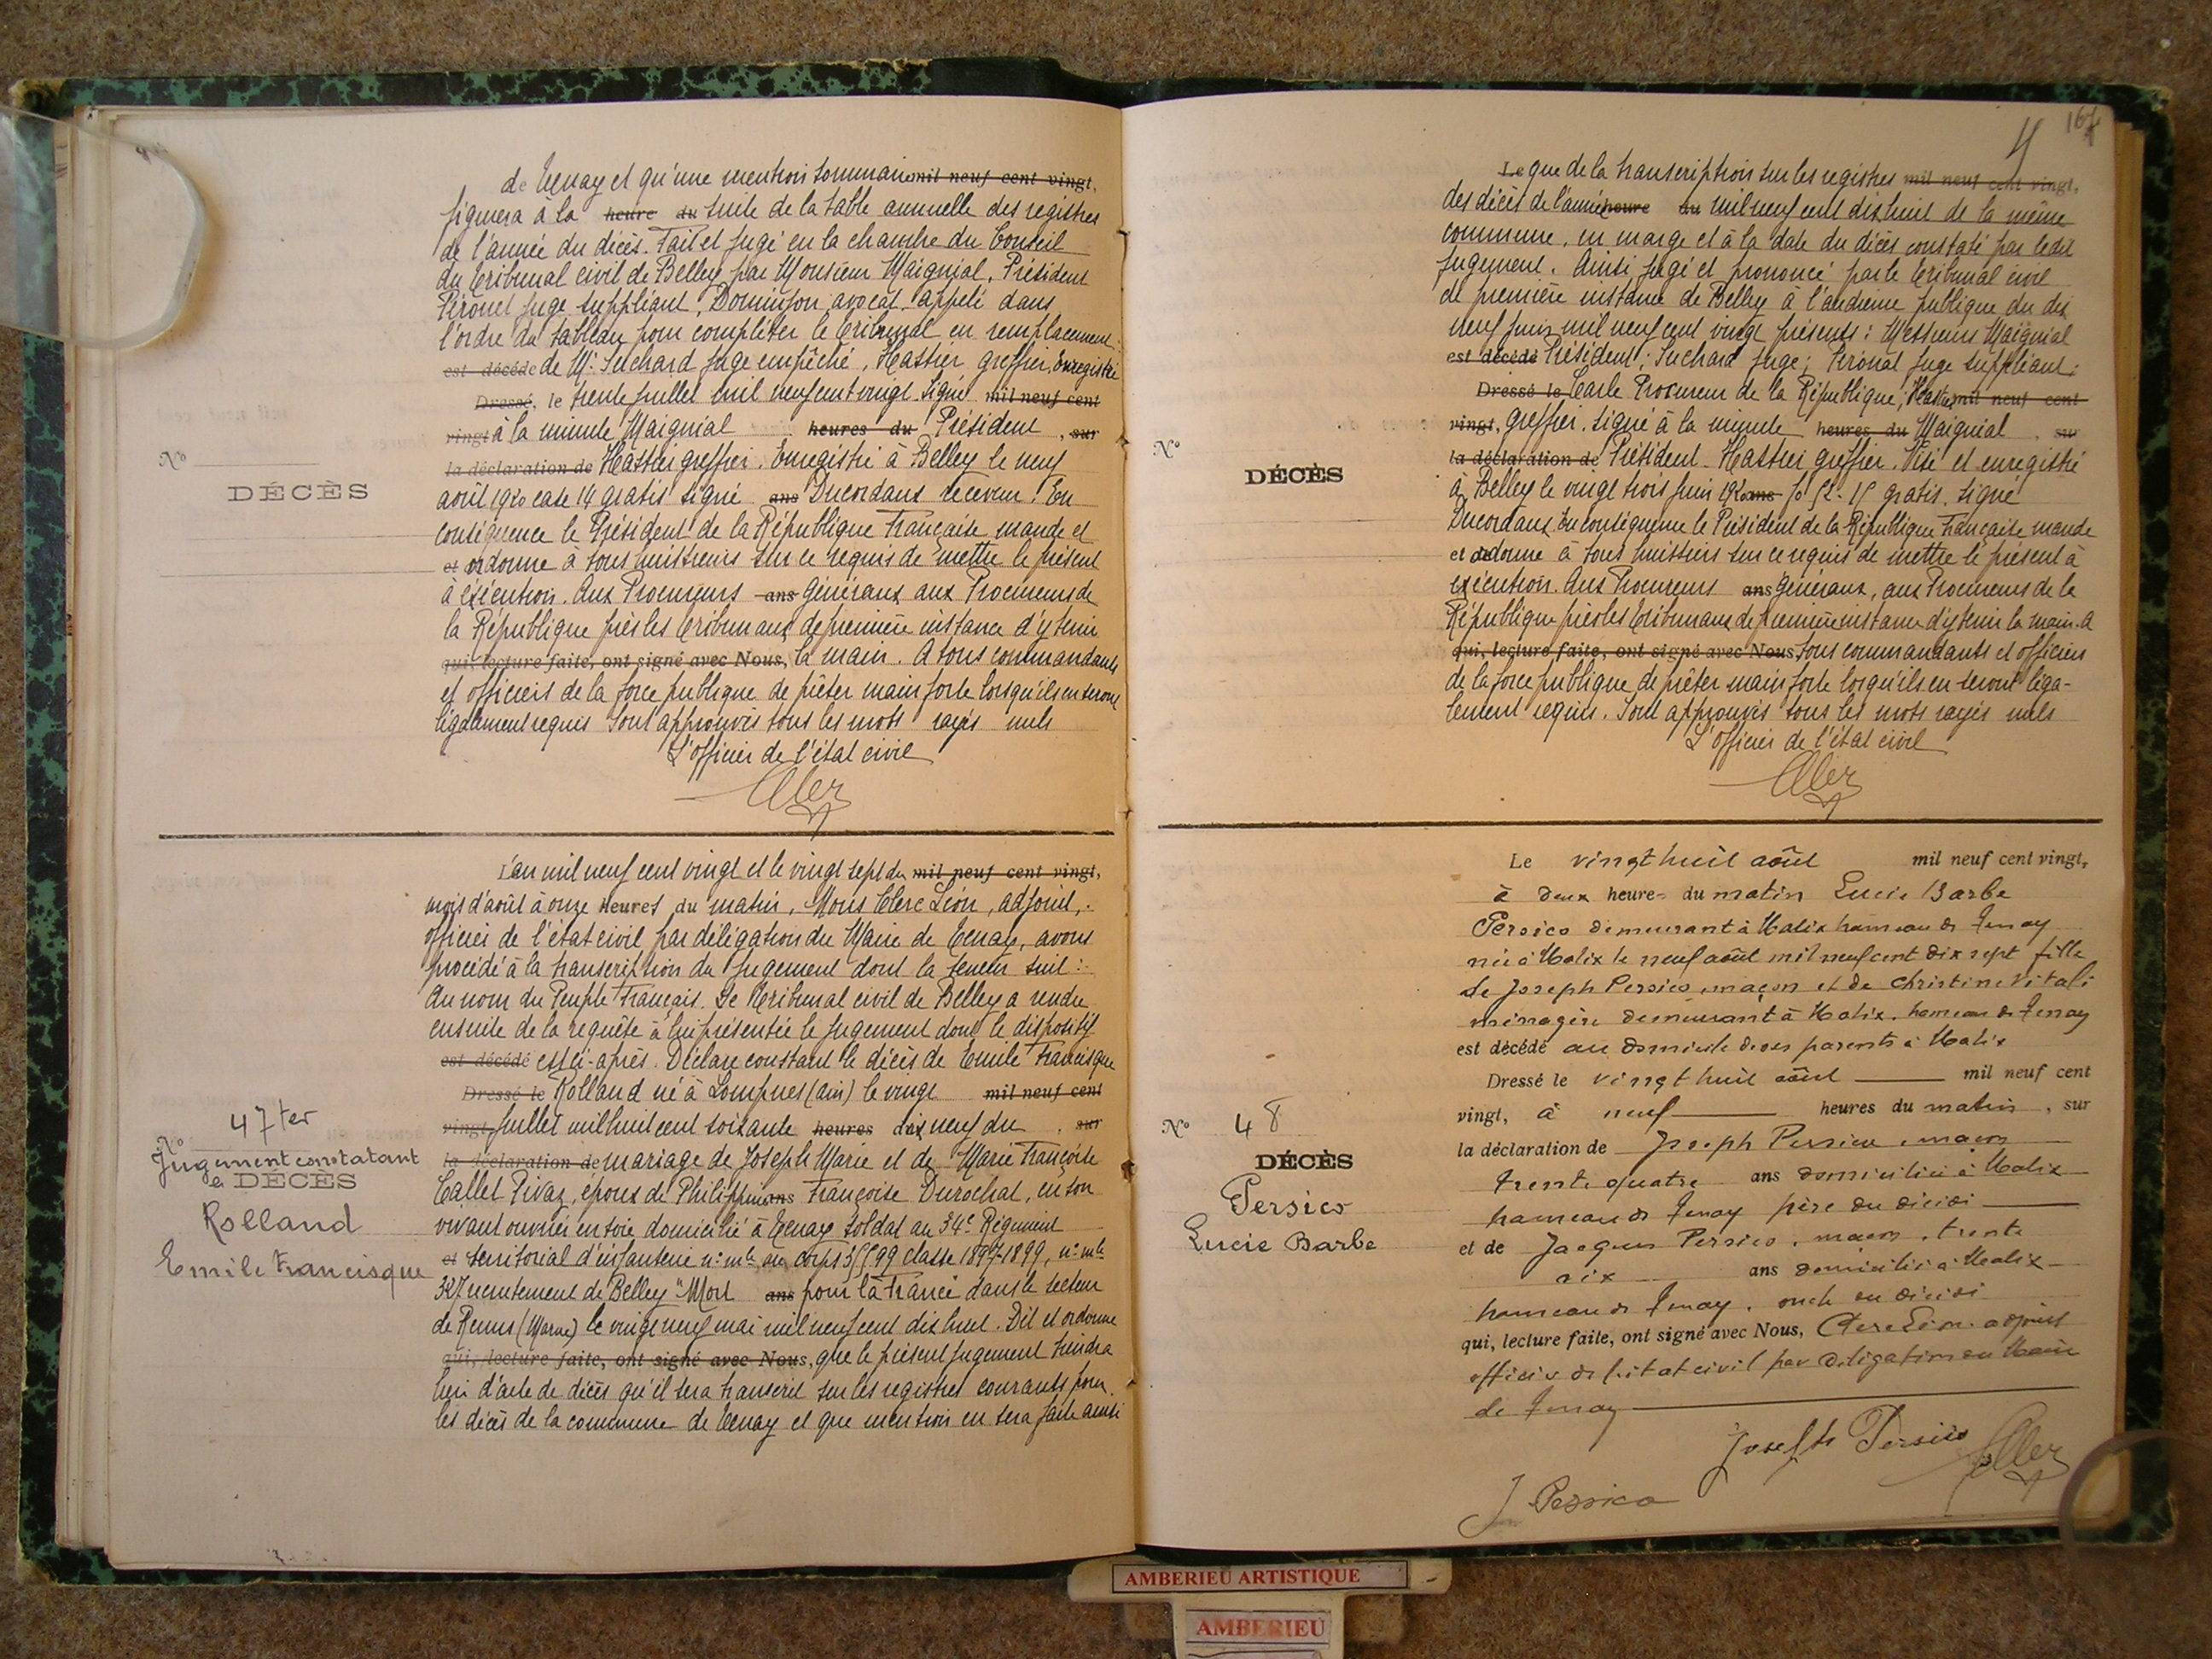 de Tenay et qu'une mention sommaire mil neuf cent vingt,
figurera à la heure du suite de la table annuelle des registres
de l'année du décès. Fait et jugé en la chambre du Conseil
du Tribunal civil de Belley par Monsieur Maignial, Président
Péronet juge suppléant, Dominjon avocat appelé dans
l'ordre du tableau pour compléter le Tribunal en remplacement
est décédé de Mr Suchard juge empêché, Hastier greffier, Enregistré
Dressé, le trente juillet mil neuf cent vingt. Signé mil neuf cent
vingt à la minute Maignial heures du Président, sur
la déclaration de Hastier greffier. Enregistré à Belley le neuf
N°
DÉCÈS
août 1920 case 14 gratis signé ans Ducordaux receveur. En
conséquence le Président de la République Française mande et
et ordonne à tous huissiers sur ce requis de mettre le présent
à exécution. Aux Procureurs ans Généraux aux Procureurs de
la République près les Tribunaux de première instance d'y tenir
qui, lecture faite, ont signé avec Nous, la main. A tous commandants
et officiers de la force publique de prêter main forte lorsqu'ils en seront
légalement requis Sont approuvés tous les mots rayés nuls
L'officier de l'état civil
L'an mil neuf cent vingt et le vingt sept du mil neuf cent vingt,
mois d'août à onze heures du matin, Nous Clerc Léon, adjoint,
officier de l'état civil par délégation du Maire de Tenay, avons
procédé à la transcription du jugement dont la teneur suit:
Au nom du Peuple Français. Le Tribunal civil de Belley a rendu
ensuite de la requête à lui présentée le jugement dont le dispositif
est décédé est ci-après. Déclare constant le décès de Emile Francisque
Dressé le Rolland né à Lompnes (Ain) le vingt mil neuf cent
vingt juillet mil huit cent soixante heures dix neuf du , sur
47 ter
N°
Jugement constatant
le DÉCÈS
Rolland
Emile Francisque
la déclaration de mariage de Joseph Marie et de Marie Françoise
Callet Pivaz, époux de Philippine ans Françoise Durochat, en son
vivant ouvrier en soie domicilié à Tenay soldat au 34e Régiment
et territorial d'infanterie n° mle au corps 35599 classe 1897-1899, n° mle
327 recrutement de Belley "Mort ans pour la France" dans le secteur
de Reims (Marne) le vingt neuf mai mil neuf cent dix huit. Dit et ordonne
qui, lecture faite, ont signé avec Nous, que le présent jugement tiendra
lieu d'acte de décès qu'il sera transcrit sur les registres courants pour
les décès de la commune de Tenay et que mention en sera faite ainsi
167
Le que de la transcription sur les registres mil neuf cent vingt,
des décès de l'année heure du mil neuf cent dix huit de la même
commune, en marge et à la date du décès constaté par ledit
jugement. Ainsi jugé et prononcé par le Tribunal civil
de première instance de Belley à l'audience publique du dix
neuf juin mil neuf cent vingt présents: Messieurs Maignial
est décédé Président; Suchard juge; Péronet juge suppléant;
Dressé le Carle Procureur de la République; Hastier mil neuf cent
vingt, greffier. Signé à la minute heures du Maignial , sur
la déclaration de Président. Hastier greffier. Visé et enregistré
N°
DÉCÈS
à Belley le vingt trois juin 1920 ans fo 52 - 15 gratis. Signé
Ducordaux En conséquence le Président de la République Française mande
et ordonne à tous huissiers sur ce requis de mettre le présent à
exécution. Aux Procureurs ans Généraux, aux Procureurs de la
République près les Tribunaux de première instance d'y tenir la main. A
qui, lecture faite, ont signé avec Nous, tous commandants et officiers
de la force publique de prêter main forte lorsqu'ils en seront léga-
lement requis. Sont approuvés tous les mots rayés nuls
L'officier de l'état civil
Le vingt huit août mil neuf cent vingt,
à deux heures du matin Lucie Barbe
Persico demeurant à Malix hameau de Tenay
née à Malix le neuf août mil neuf cent dix sept fille
de Joseph Persico, maçon et de Christine Vitali
ménagère demeurant à Malix, hameau de Tenay
est décédé au domicile de ses parents à Malix
Dressé le vingt huit août mil neuf cent
vingt, à neuf heures du matin, sur
N° 48
DÉCÈS
Persico
Lucie Barbe
la déclaration de Joseph Persico, maçon
trente quatre ans domicilié à Malix
hameau de Tenay père du décédé
et de Jacques Persico, maçon, trente
six ans domicilié à Malix
hameau de Tenay, oncle du décédé
qui, lecture faite, ont signé avec Nous, Clerc Léon adjoint
officier de l'état civil par délégation du Maire
de Tenay
Joseph Persico
J. Persico
AMBERIEU ARTISTIQUE
AMBERIEU